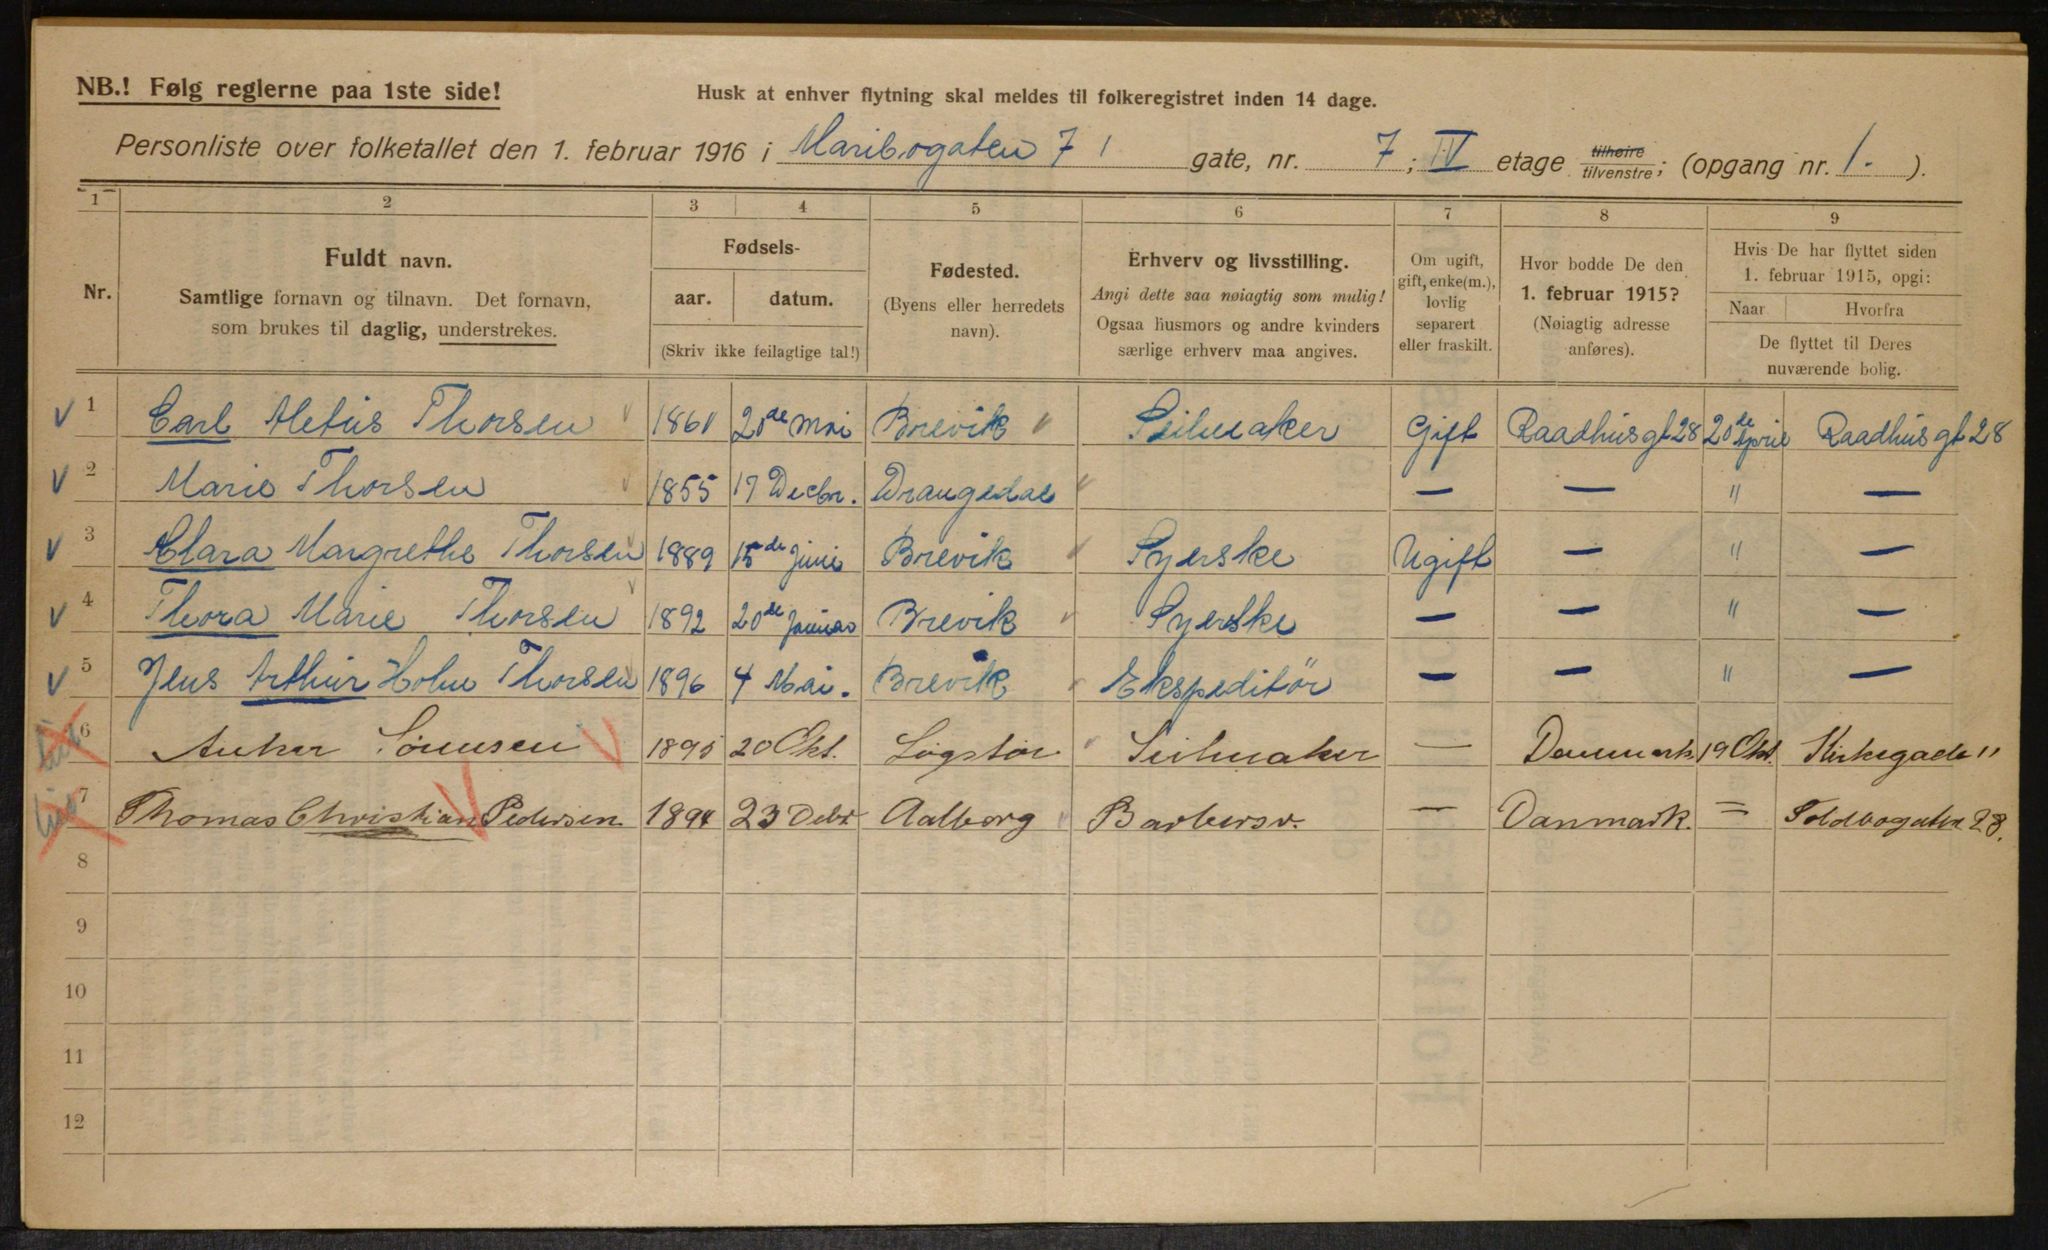 NB.! Følg reglerne paa 1ste side!
Husk at enhver flytning skal meldes til folkeregistret inden 14 dage.
Personliste over folketallet den 1. februar 1916 i Maribogaten 7 1 gate, nr. 7; IV etage tilhøire tilvenstre; (opgang nr. 1. ).
1 2 3 4 5 6 7 8 9
Nr.
Fuldt navn.
Samtlige fornavn og tilnavn. Det fornavn,
som brukes til daglig, understrekes.
Fødsels-
aar. datum.
(Skriv ikke feilagtige tal!)
Fødested.
(Byens eller herredets
navn).
Erhverv og livsstilling.
Angi dette saa nøiagtig som mulig!
Ogsaa husmors og andre kvinders
særlige erhverv maa angives.
Om ugift,
gift, enke(m.),
lovlig
separert
eller fraskilt.
Hvor bodde De den
1. februar 1915?
(Nøiagtig adresse
anføres).
Hvis De har flyttet siden
1. februar 1915, opgi:
Naar Hvorfra
De flyttet til Deres
nuværende bolig.
1 Carl Aletius Thorsen 1861 20de Mai Brevik Seilmaker Gift Raadhusgt 28 20de April Raadhusgt 28
2 Marie Thorsen 1855 17 Decbr. Drangedal — — " —
3 Clara Margrethe Thorsen 1889 15de Juni Brevik Syerske Ugift — " —
4 Thora Marie Thorsen 1892 20de Januar Brevik Syerske — — " —
5 Jens Arthur Holm Thorsen 1896 4 Mai. Brevik Ekspeditör — — " —
6 Anker Sörensen 1895 20 Okt. Løgstör Seilmaker — Danmark. 19 Okt. Kirkegade 11
7 Thomas Christian Pedersen 1894 23 Debr Aalborg Barbersv. — Danmark. = Toldbogaten 28.
8
9
10
11
12